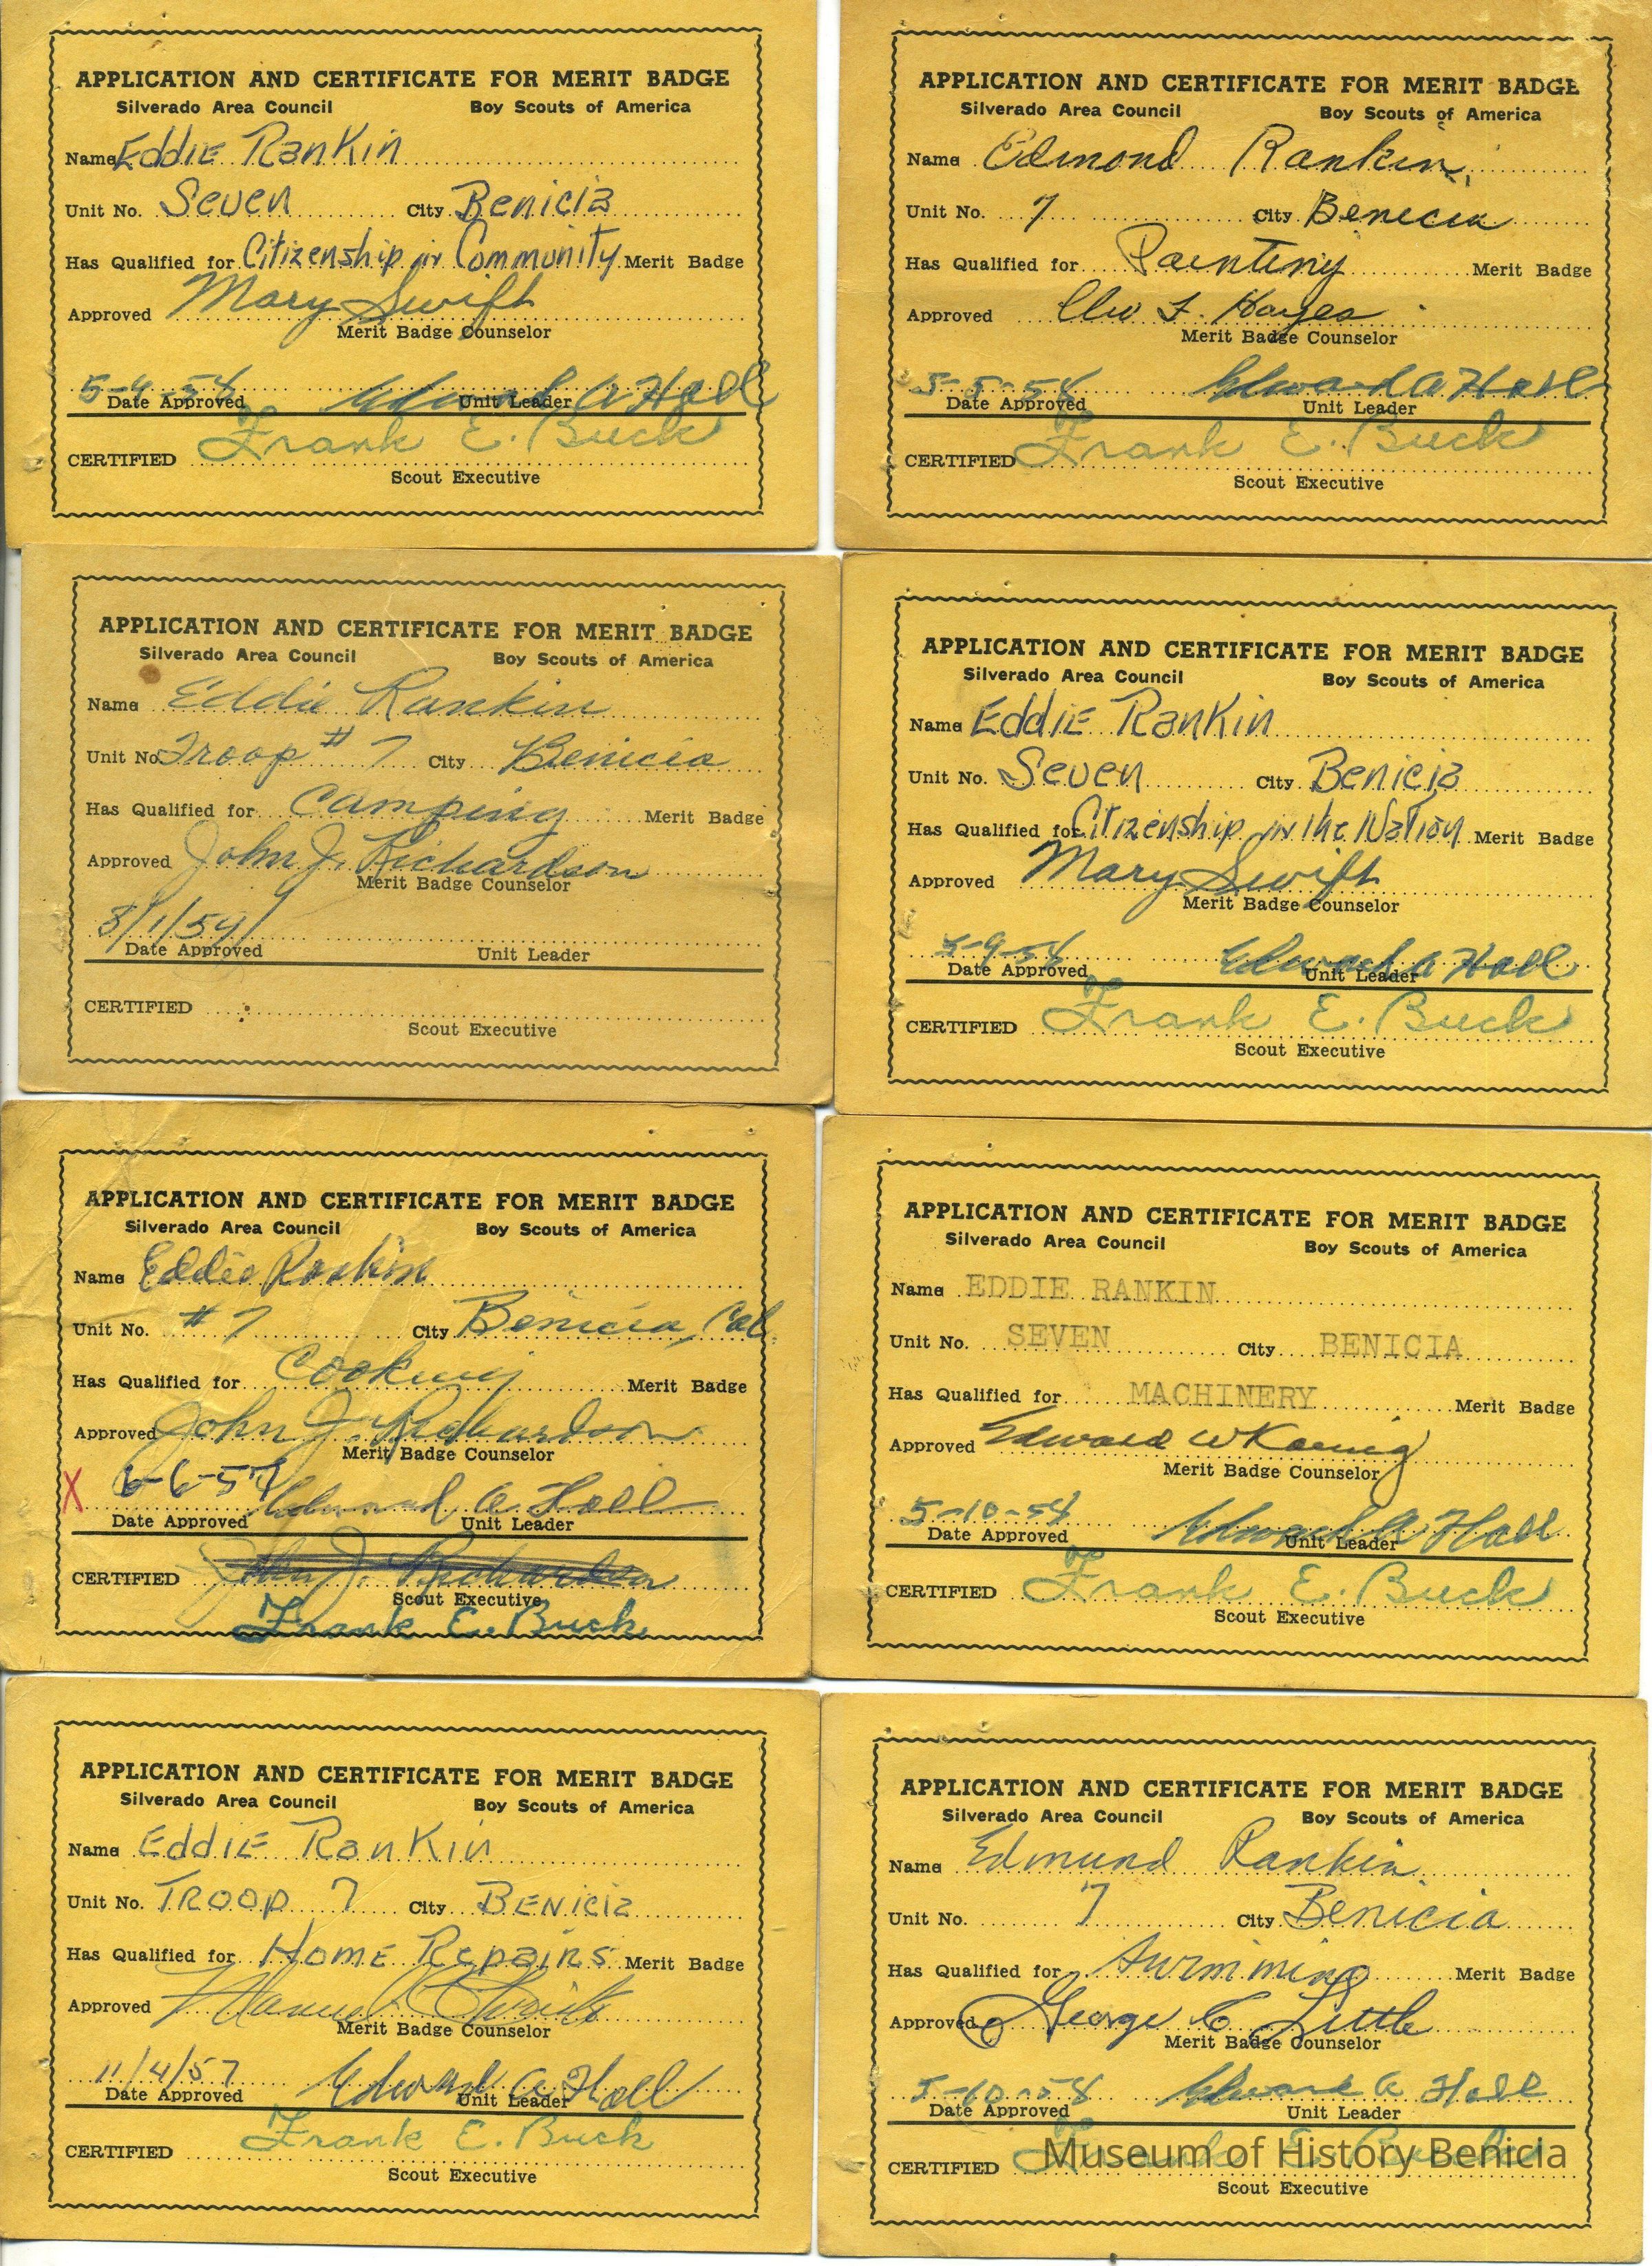 APPLICATION AND CERTIFICATE FOR MERIT BADGE
Silverado Area Council Boy Scouts of America
Name Eddie Rankin
Unit No. Seven City Benicia
Has Qualified for Citizenship in Community Merit Badge
Approved Mary Swift
Merit Badge Counselor
Edward A Hall
Date Approved Unit Leader
CERTIFIED Frank E. Buck
Scout Executive
APPLICATION AND CERTIFICATE FOR MERIT BADGE
Silverado Area Council Boy Scouts of America
Name Edmond Rankin
Unit No. 7 City Benicia
Has Qualified for Painting Merit Badge
Approved F. Hayes
Merit Badge Counselor
5-5-58 Edward A Hall
Date Approved Unit Leader
CERTIFIED Frank E. Buck
Scout Executive
APPLICATION AND CERTIFICATE FOR MERIT BADGE
Silverado Area Council Boy Scouts of America
Name Eddie Rankin
Unit No. Troop # 7 City Benicia
Has Qualified for Camping Merit Badge
Approved John J. Richardson
Merit Badge Counselor
Date Approved Unit Leader
CERTIFIED
Scout Executive
APPLICATION AND CERTIFICATE FOR MERIT BADGE
Silverado Area Council Boy Scouts of America
Name Eddie Rankin
Unit No. Seven City Benicia
Has Qualified for Citizenship in the Nation Merit Badge
Approved Mary Swift
Merit Badge Counselor
Edward A Hall
Date Approved Unit Leader
CERTIFIED Frank E. Buck
Scout Executive
APPLICATION AND CERTIFICATE FOR MERIT BADGE
Silverado Area Council Boy Scouts of America
Name Eddie Rankin
Unit No. # 7 City Benicia, Cal.
Has Qualified for Cooking Merit Badge
Approved John J. Richardson
Merit Badge Counselor
X 6-6-57 Edward A. Hall
Date Approved Unit Leader
CERTIFIED John J. Richardson
Scout Executive
Frank E. Buck
APPLICATION AND CERTIFICATE FOR MERIT BADGE
Silverado Area Council Boy Scouts of America
Name EDDIE RANKIN
Unit No. SEVEN City BENICIA
Has Qualified for MACHINERY Merit Badge
Approved Edward W Koenig
Merit Badge Counselor
5-10-58 Edward A Hall
Date Approved Unit Leader
CERTIFIED Frank E. Buck
Scout Executive
APPLICATION AND CERTIFICATE FOR MERIT BADGE
Silverado Area Council Boy Scouts of America
Name Eddie Rankin
Unit No. Troop 7 City Benicia
Has Qualified for Home Repairs Merit Badge
Approved
Merit Badge Counselor
11/4/57 Edward A. Hall
Date Approved Unit Leader
CERTIFIED Frank E. Buck
Scout Executive
APPLICATION AND CERTIFICATE FOR MERIT BADGE
Silverado Area Council Boy Scouts of America
Name Edmund Rankin
Unit No. 7 City Benicia
Has Qualified for Swimming Merit Badge
Approved George C Little
Merit Badge Counselor
5-10-58 Edward A Hall
Date Approved Unit Leader
CERTIFIED Frank E. Buck
Museum of History Benicia
Scout Executive